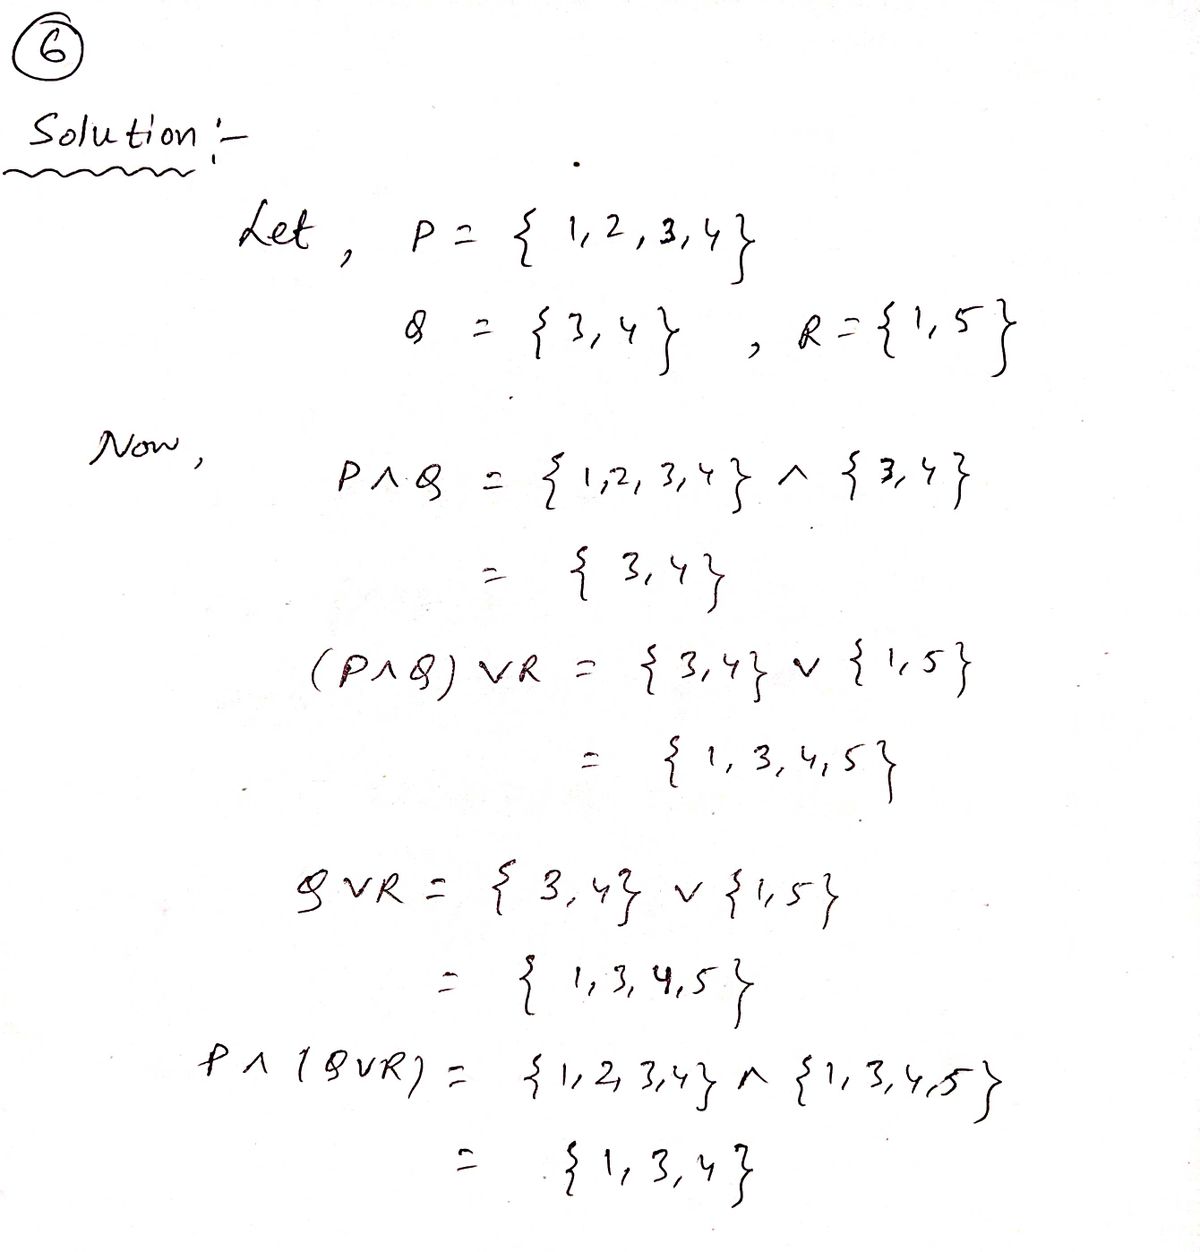 6
Solution :-
Let, P = { 1, 2, 3, 4 }
Q = { 3, 4 } , R = { 1, 5 }
Now,
P ∧ Q = { 1, 2, 3, 4 } ∧ { 3, 4 }
= { 3, 4 }
(P ∧ Q) ∨ R = { 3, 4 } ∨ { 1, 5 }
= { 1, 3, 4, 5 }
Q ∨ R = { 3, 4 } ∨ { 1, 5 }
= { 1, 3, 4, 5 }
P ∧ (Q ∨ R) = { 1, 2, 3, 4 } ∧ { 1, 3, 4, 5 }
= { 1, 3, 4 }